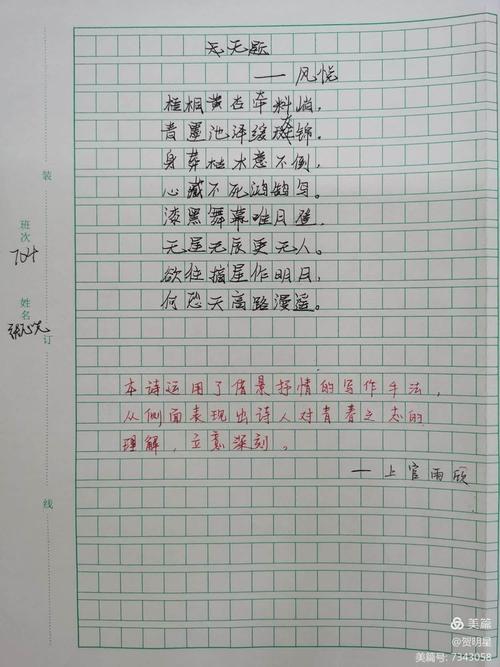 无题
——风悦
梧桐黄杏牵料峭，
青墨池泽绫锦。
身葬枯水意不倒，
心藏不死鸿鹄鸟。
漆黑舞幕唯月
无星无辰更无人。
欲往摘星作明月，
何恐天高路漫遥。
本诗运用了借景抒情的写作手法，
从侧面表现出诗人对青春之志的
理解，立意深刻。
——上官雨欣
装
班次
704
姓名
订
线
美篇
@贺明星
美篇号: 7343058